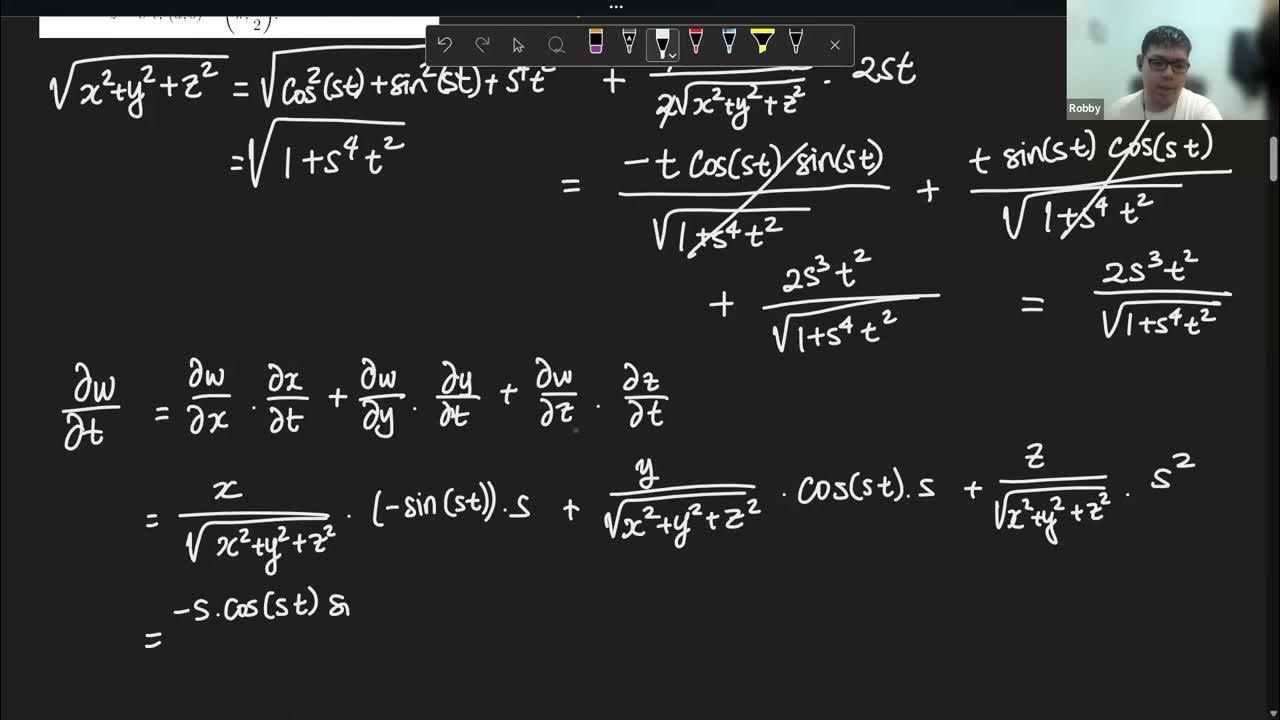 √(x²+y²+z²) = √(cos²(st)+sin²(st)+s⁴t²)
= √(1+s⁴t²)
+ z/(2√(x²+y²+z²)) · 2st
= (-t cos(st) sin(st))/√(1+s⁴t²) + (t sin(st) cos(st))/√(1+s⁴t²)
+ 2s³t²/√(1+s⁴t²) = 2s³t²/√(1+s⁴t²)
Robby
∂w/∂t = ∂w/∂x · ∂x/∂t + ∂w/∂y · ∂y/∂t + ∂w/∂z · ∂z/∂t
= x/√(x²+y²+z²) · (-sin(st)) · s + y/√(x²+y²+z²) · cos(st) · s + z/√(x²+y²+z²) · s²
= -s·cos(st) si